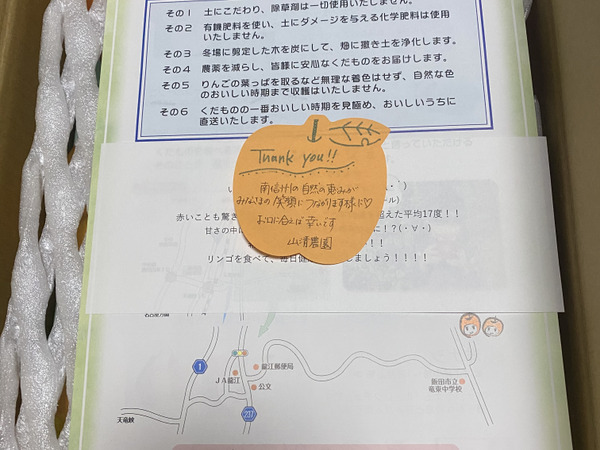 その1 土にこだわり、除草剤は一切使用いたしません。
その2 有機肥料を使い、土にダメージを与える化学肥料は使用
いたしません。
その3 冬場に剪定した木を炭にして、畑に撒き土を浄化します。
その4 農薬を減らし、皆様に安心なくだものをお届けします。
その5 りんごの葉っぱを取るなど無理な着色はせず、自然な色
のおいしい時期まで収穫はいたしません。
その6 くだものの一番おいしい時期を見極め、おいしいうちに
直送いたします。
Thank you!!
南信州の自然の恵みが
みなさまの笑顔につながります様に♡
お口に合えば幸いです
山清農園
赤いことも驚き
超えた平均17度！！
甘さの中に
に！?(・∀・)
！！
リンゴを食べて、毎日健
しましょう！！！！
1
龍江郵便局
JA龍江
公文
237
天竜峡
飯田市立
竜東中学校